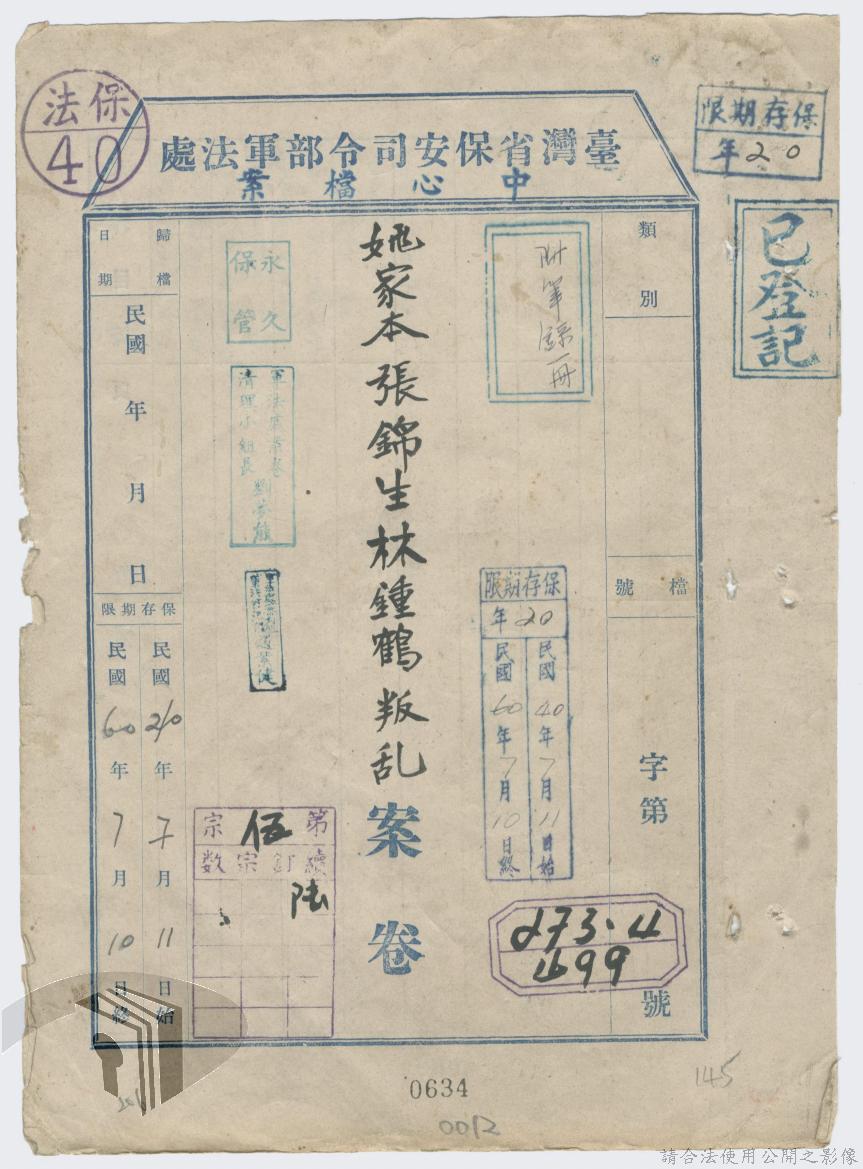 保法
40
保存期限
20年
已登記
臺灣省保安司令部軍法處
中心檔案
類別
檔號
字第
號
附筆錄一冊
保存期限
20年
民國40年7月11日始
民國60年7月10日終
273.4
499
姚家本張錦生林鍾鶴叛乱
案卷
永久
保管
軍法處案卷
清理小組長
第伍宗
續訂宗数
陸
歸檔日期
民國 年 月 日
保存期限
民國40年7月11日始
民國60年7月10日終
0634
0012
145
請合法使用公開之影像